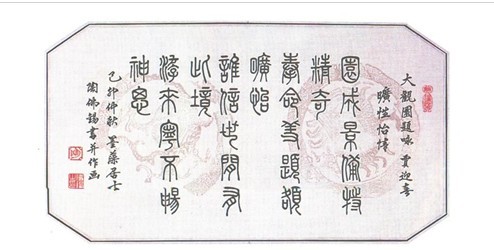 大觀園題咏 賈迎春
曠性怡情
園成景備特
精奇
奉命羞題額
曠怡
誰信世間有
此境
游來寧不暢
神思
乙卯仲秋 墨藻居士
陶佛錫書并作画